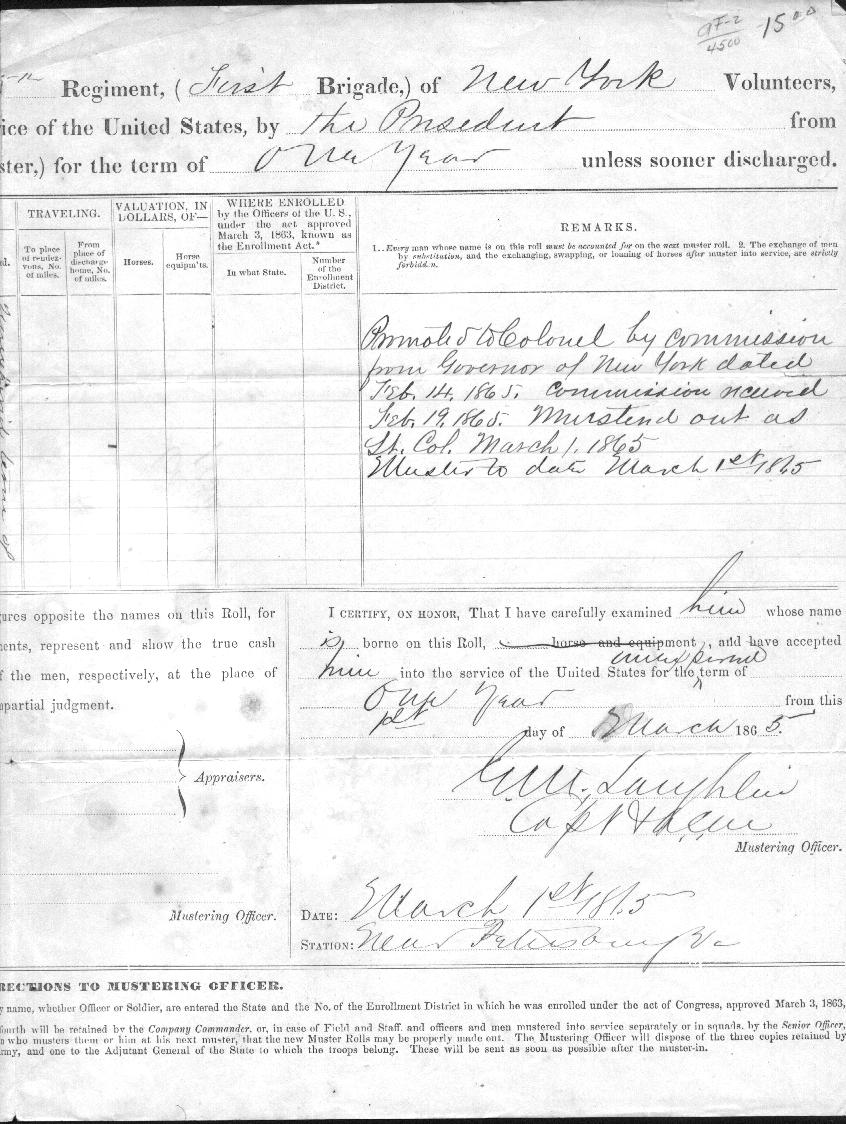 GF-2
4500
15 00
Regiment, (First Brigade,) of New York Volunteers,
ice of the United States, by the President from
ster,) for the term of One Year unless sooner discharged.
TRAVELING.
To place of rendezvous, No. of miles.
From place of discharge home, No. of miles.
VALUATION, IN DOLLARS, OF—
Horses.
Horse equipm'ts.
WHERE ENROLLED
by the Officers of the U. S.,
under the act approved
March 3, 1863, known as
the Enrollment Act.*
In what State.
Number of the Enrollment District.
REMARKS.
1..Every man whose name is on this roll must be accounted for on the next muster roll. 2. The exchange of men
by substitution, and the exchanging, swapping, or loaning of horses after muster into service, are strictly
forbidden.
Promoted to Colonel by commission
from Governor of New York dated
Feb. 14, 1865. Commission received
Feb. 19, 1865. Musterd out as
Lt. Col. March 1, 1865
Muster to date March 1st 1865
ures opposite the names on this Roll, for
ents, represent and show the true cash
f the men, respectively, at the place of
partial judgment.
Appraisers.
Mustering Officer.
I CERTIFY, ON HONOR, That I have carefully examined him whose name
is borne on this Roll, horse and equipment, and have accepted
him into the service of the United States for the unexpired term of
One Year from this
1st day of March 1865.
Laughlin
Capt
Mustering Officer.
DATE: March 1st 1865
STATION: Near Petersburg Va
RECTIONS TO MUSTERING OFFICER.
y name, whether Officer or Soldier, are entered the State and the No. of the Enrollment District in which he was enrolled under the act of Congress, approved March 3, 1863,
fourth will be retained by the Company Commander, or, in case of Field and Staff, and officers and men mustered into service separately or in squads, by the Senior Officer,
who musters them or him at his next muster, that the new Muster Rolls may be properly made out. The Mustering Officer will dispose of the three copies retained by
rmy, and one to the Adjutant General of the State to which the troops belong. These will be sent as soon as possible after the muster-in.